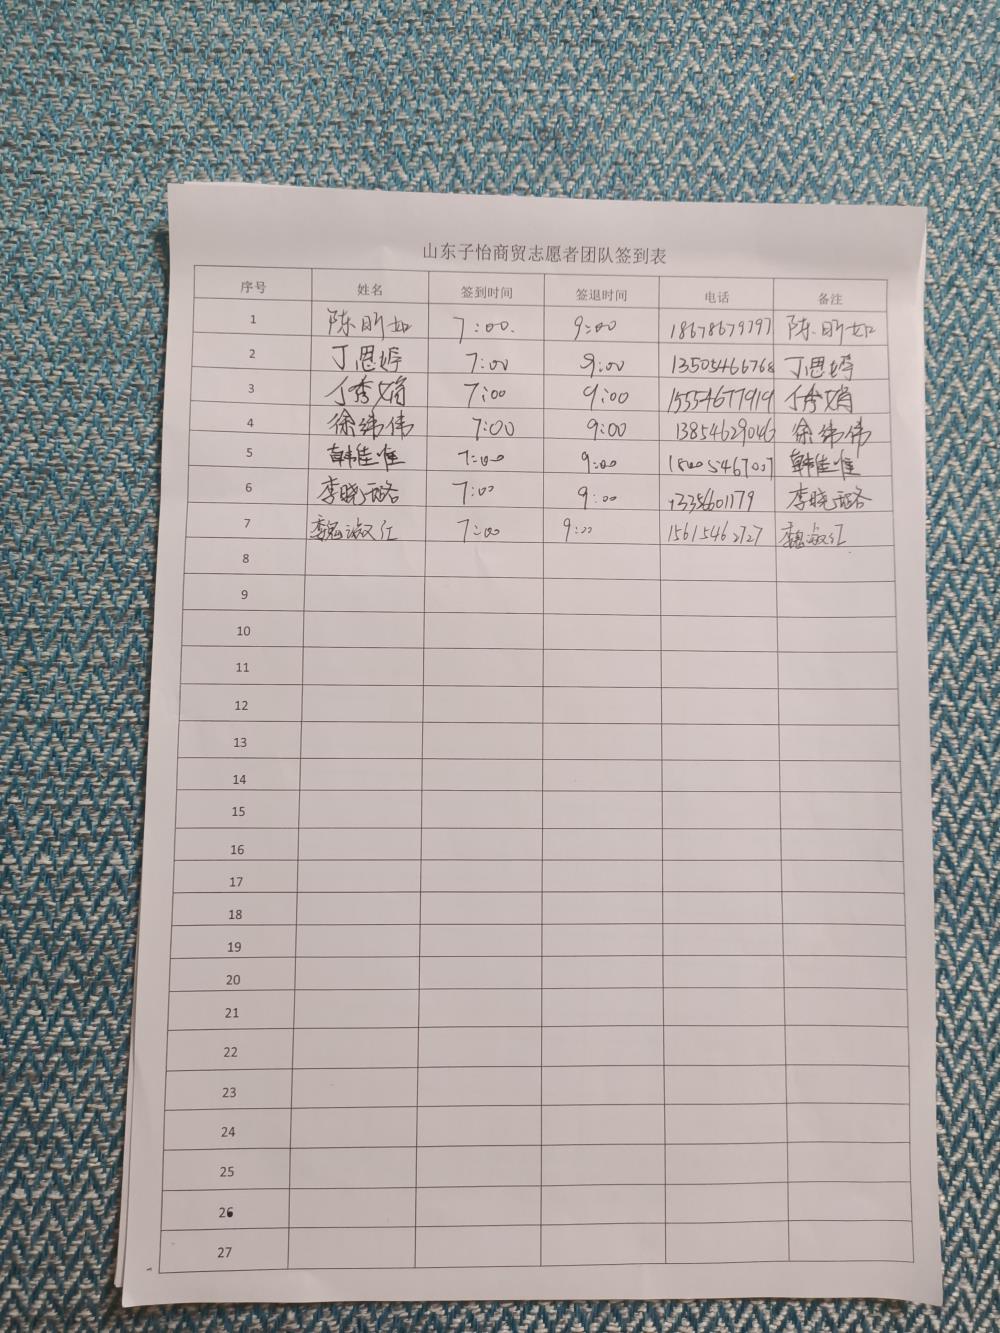 山东子怡商贸志愿者团队签到表
序号 姓名 签到时间 签退时间 电话 备注
1 陈昕如 7:00. 9:00 18678679797 陈昕如
2 丁思婷 7:00 9:00 13505466768 丁思婷
3 丁秀娟 7:00 9:00 15554677919 丁秀娟
4 徐纬伟 7:00 9:00 13854629046 徐纬伟
5 韩佳唯 7:00 9:00 韩佳唯
6 李晓璐 7:00 9:00 李晓璐
7 魏淑红 7:00 9:00 15615462727 魏淑红
8
9
10
11
12
13
14
15
16
17
18
19
20
21
22
23
24
25
26
27